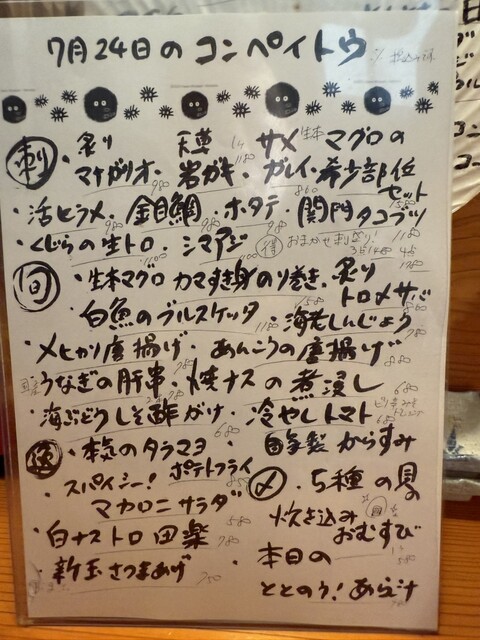 7月24日のコンペイトウ
刺 ・炙り 天草 サメ 生本マグロの
マナガツオ・岩ガキ・ガレイ・希少部位
980 1180 860 セット
1580
・活ヒラメ・金目鯛・ホタテ・関門タコブツ
980 980 780 1180
・くじらの生トロ・シマアジ 得 おまかせ刺盛り!
1600 3点1480 4点
旬 ・生本マグロ カマすき身のり巻き・炙り
1580 トロ〆サバ
白魚のブルスケッタ 860
1180 ・海老しんじょう
780
・メヒカリ唐揚げ・あんこうの唐揚げ
780 880
うなぎの肝串・焼ナスの煮浸し
680
・海ぶどうしそ酢がけ・冷やしトマト
680
仮 ・本気のタラマヨ 自家製からすみ
・スパイシー! ポテトフライ
マカロニサラダ
580
・白ナストロ田楽
780
・新玉さつまあげ
750
〆 ・5種の具
炊き込み
おむすび
580
本日の
ととのう!あら汁